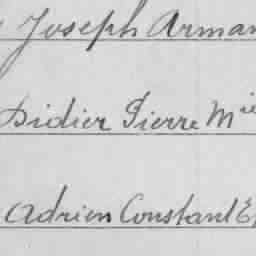 Joseph Arman
Didier Pierre Mie
Adrien Constant E